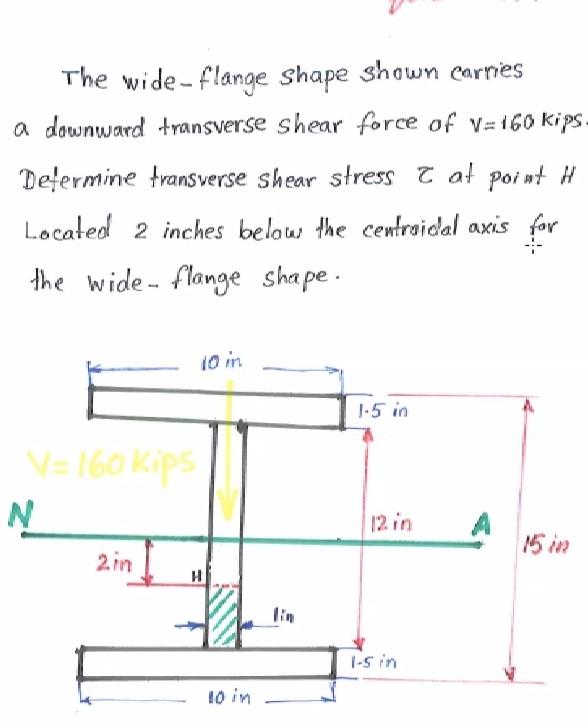 The wide-flange shape shown carries
a downward transverse shear force of V=160 kips.
Determine transverse shear stress τ at point H
Located 2 inches below the centroidal axis for
the wide-flange shape.
10 in
1.5 in
V=160 kips
N
12 in
A
15 in
2in
H
1in
1.5 in
10 in